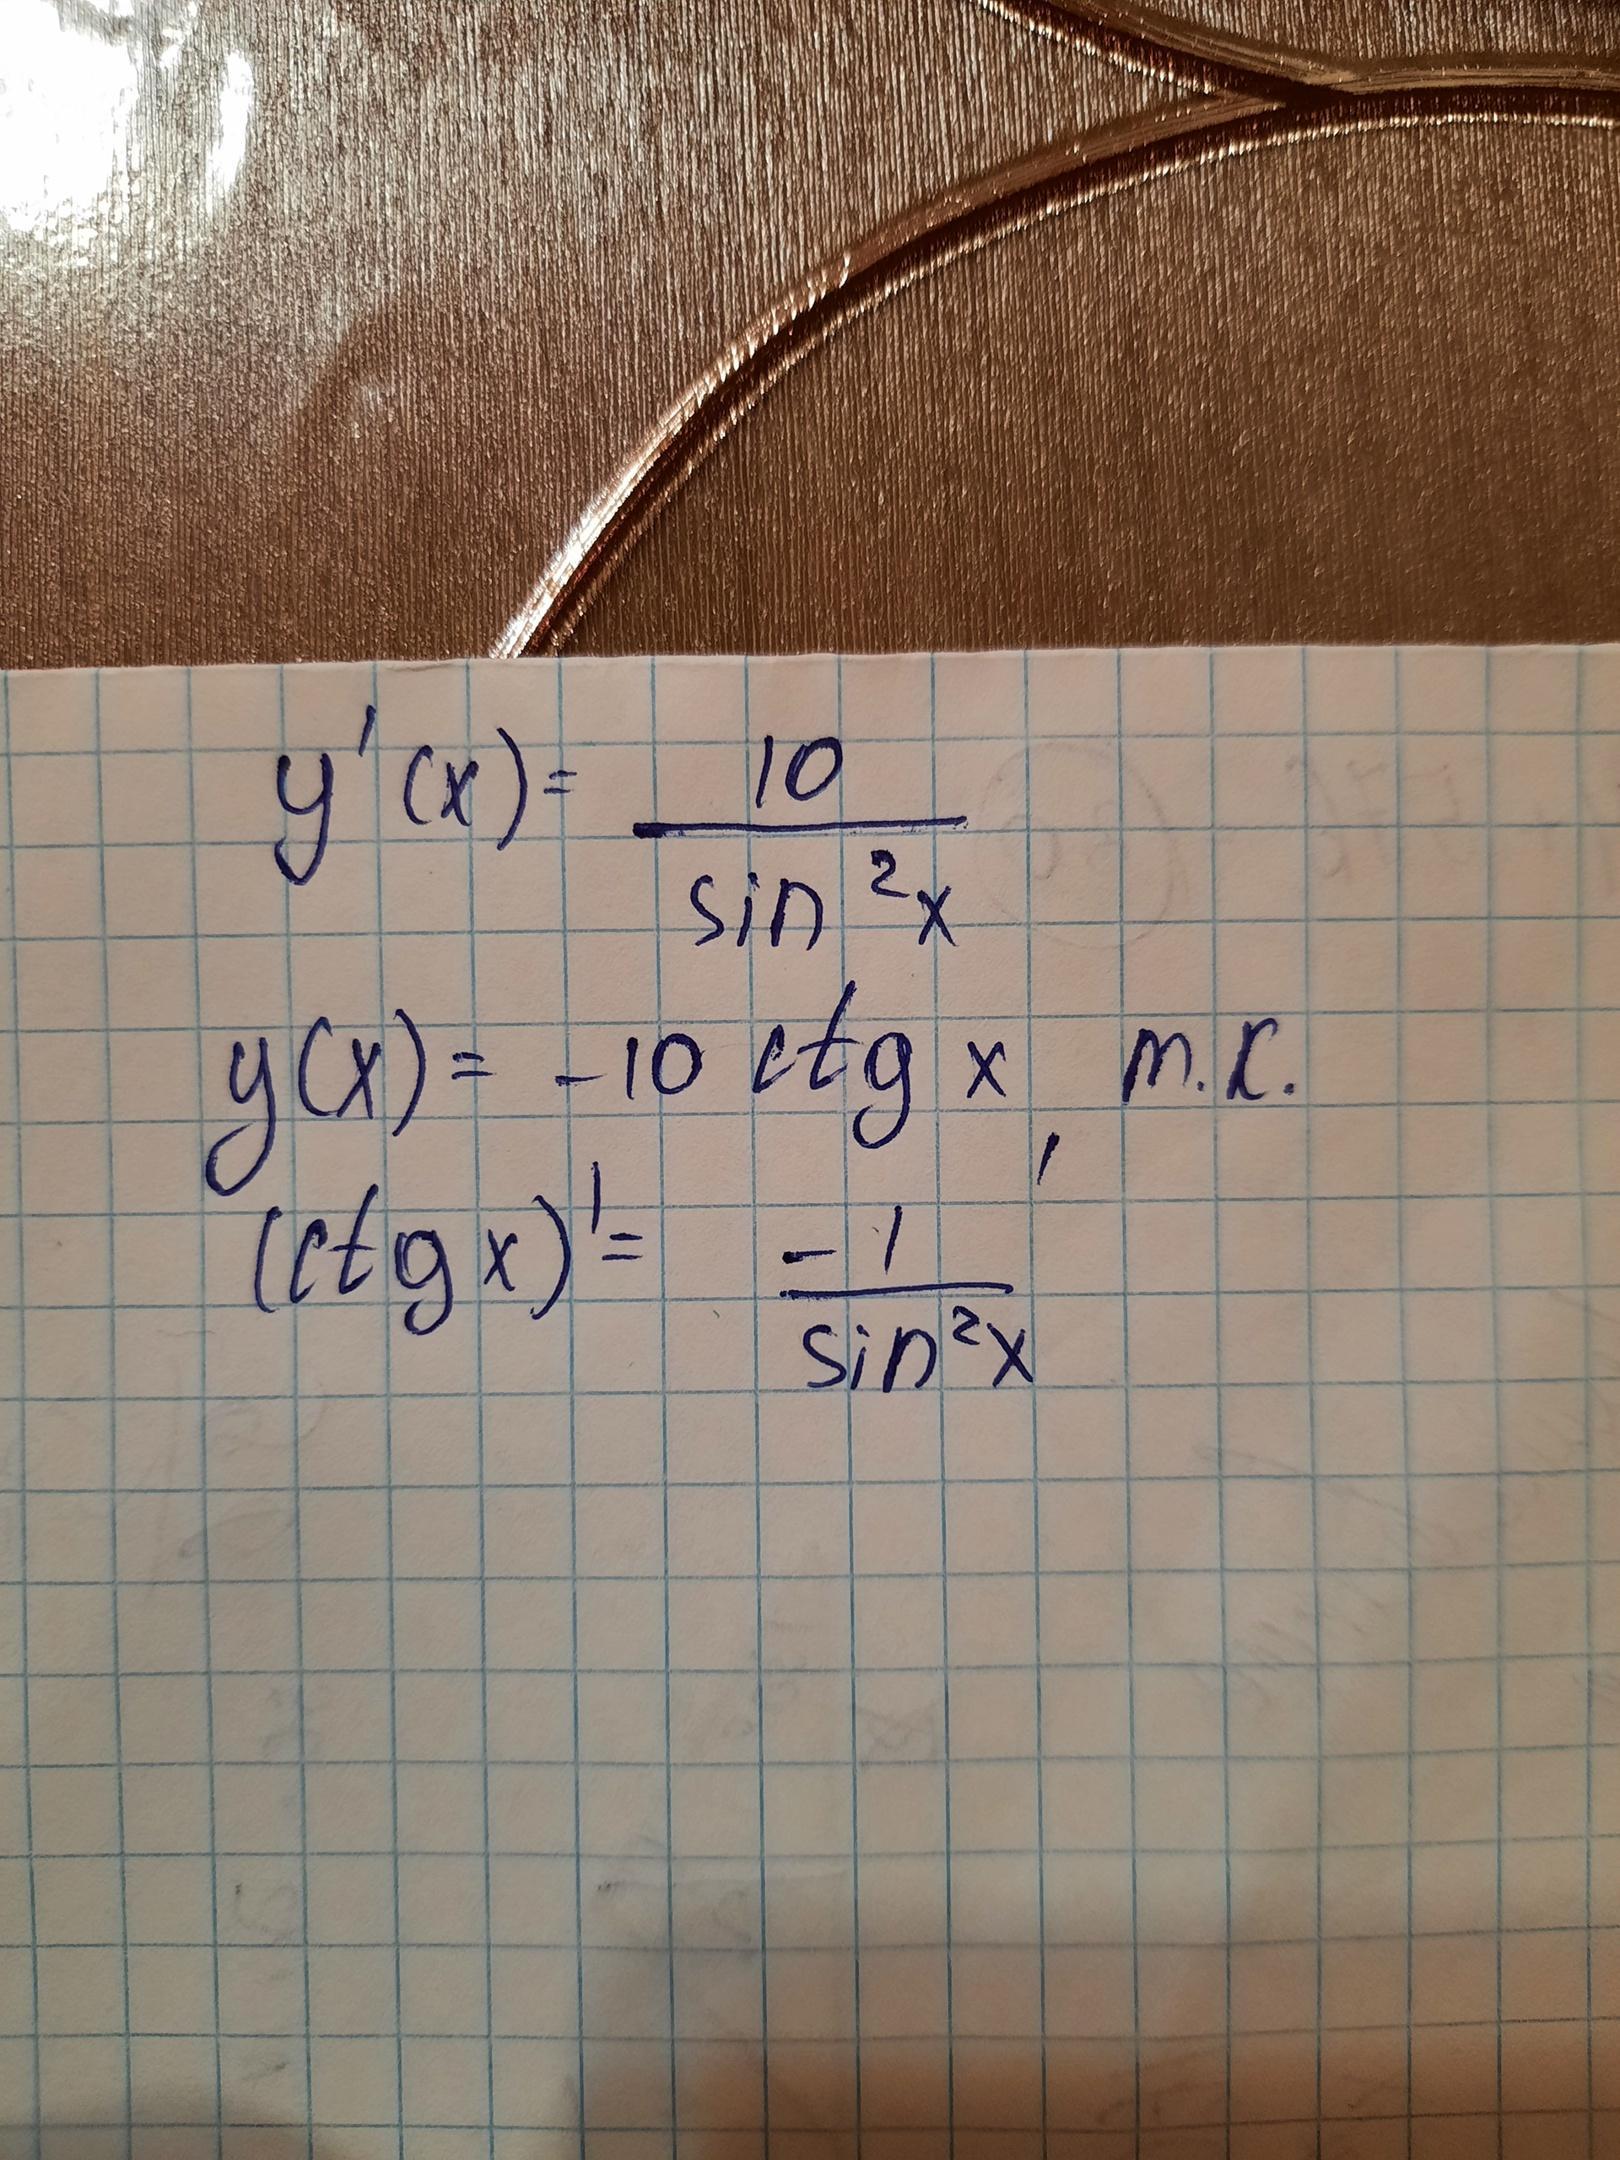 y'(x) = 10/sin²x
y(x) = -10 ctg x, т.к.
(ctg x)' = -1/sin²x